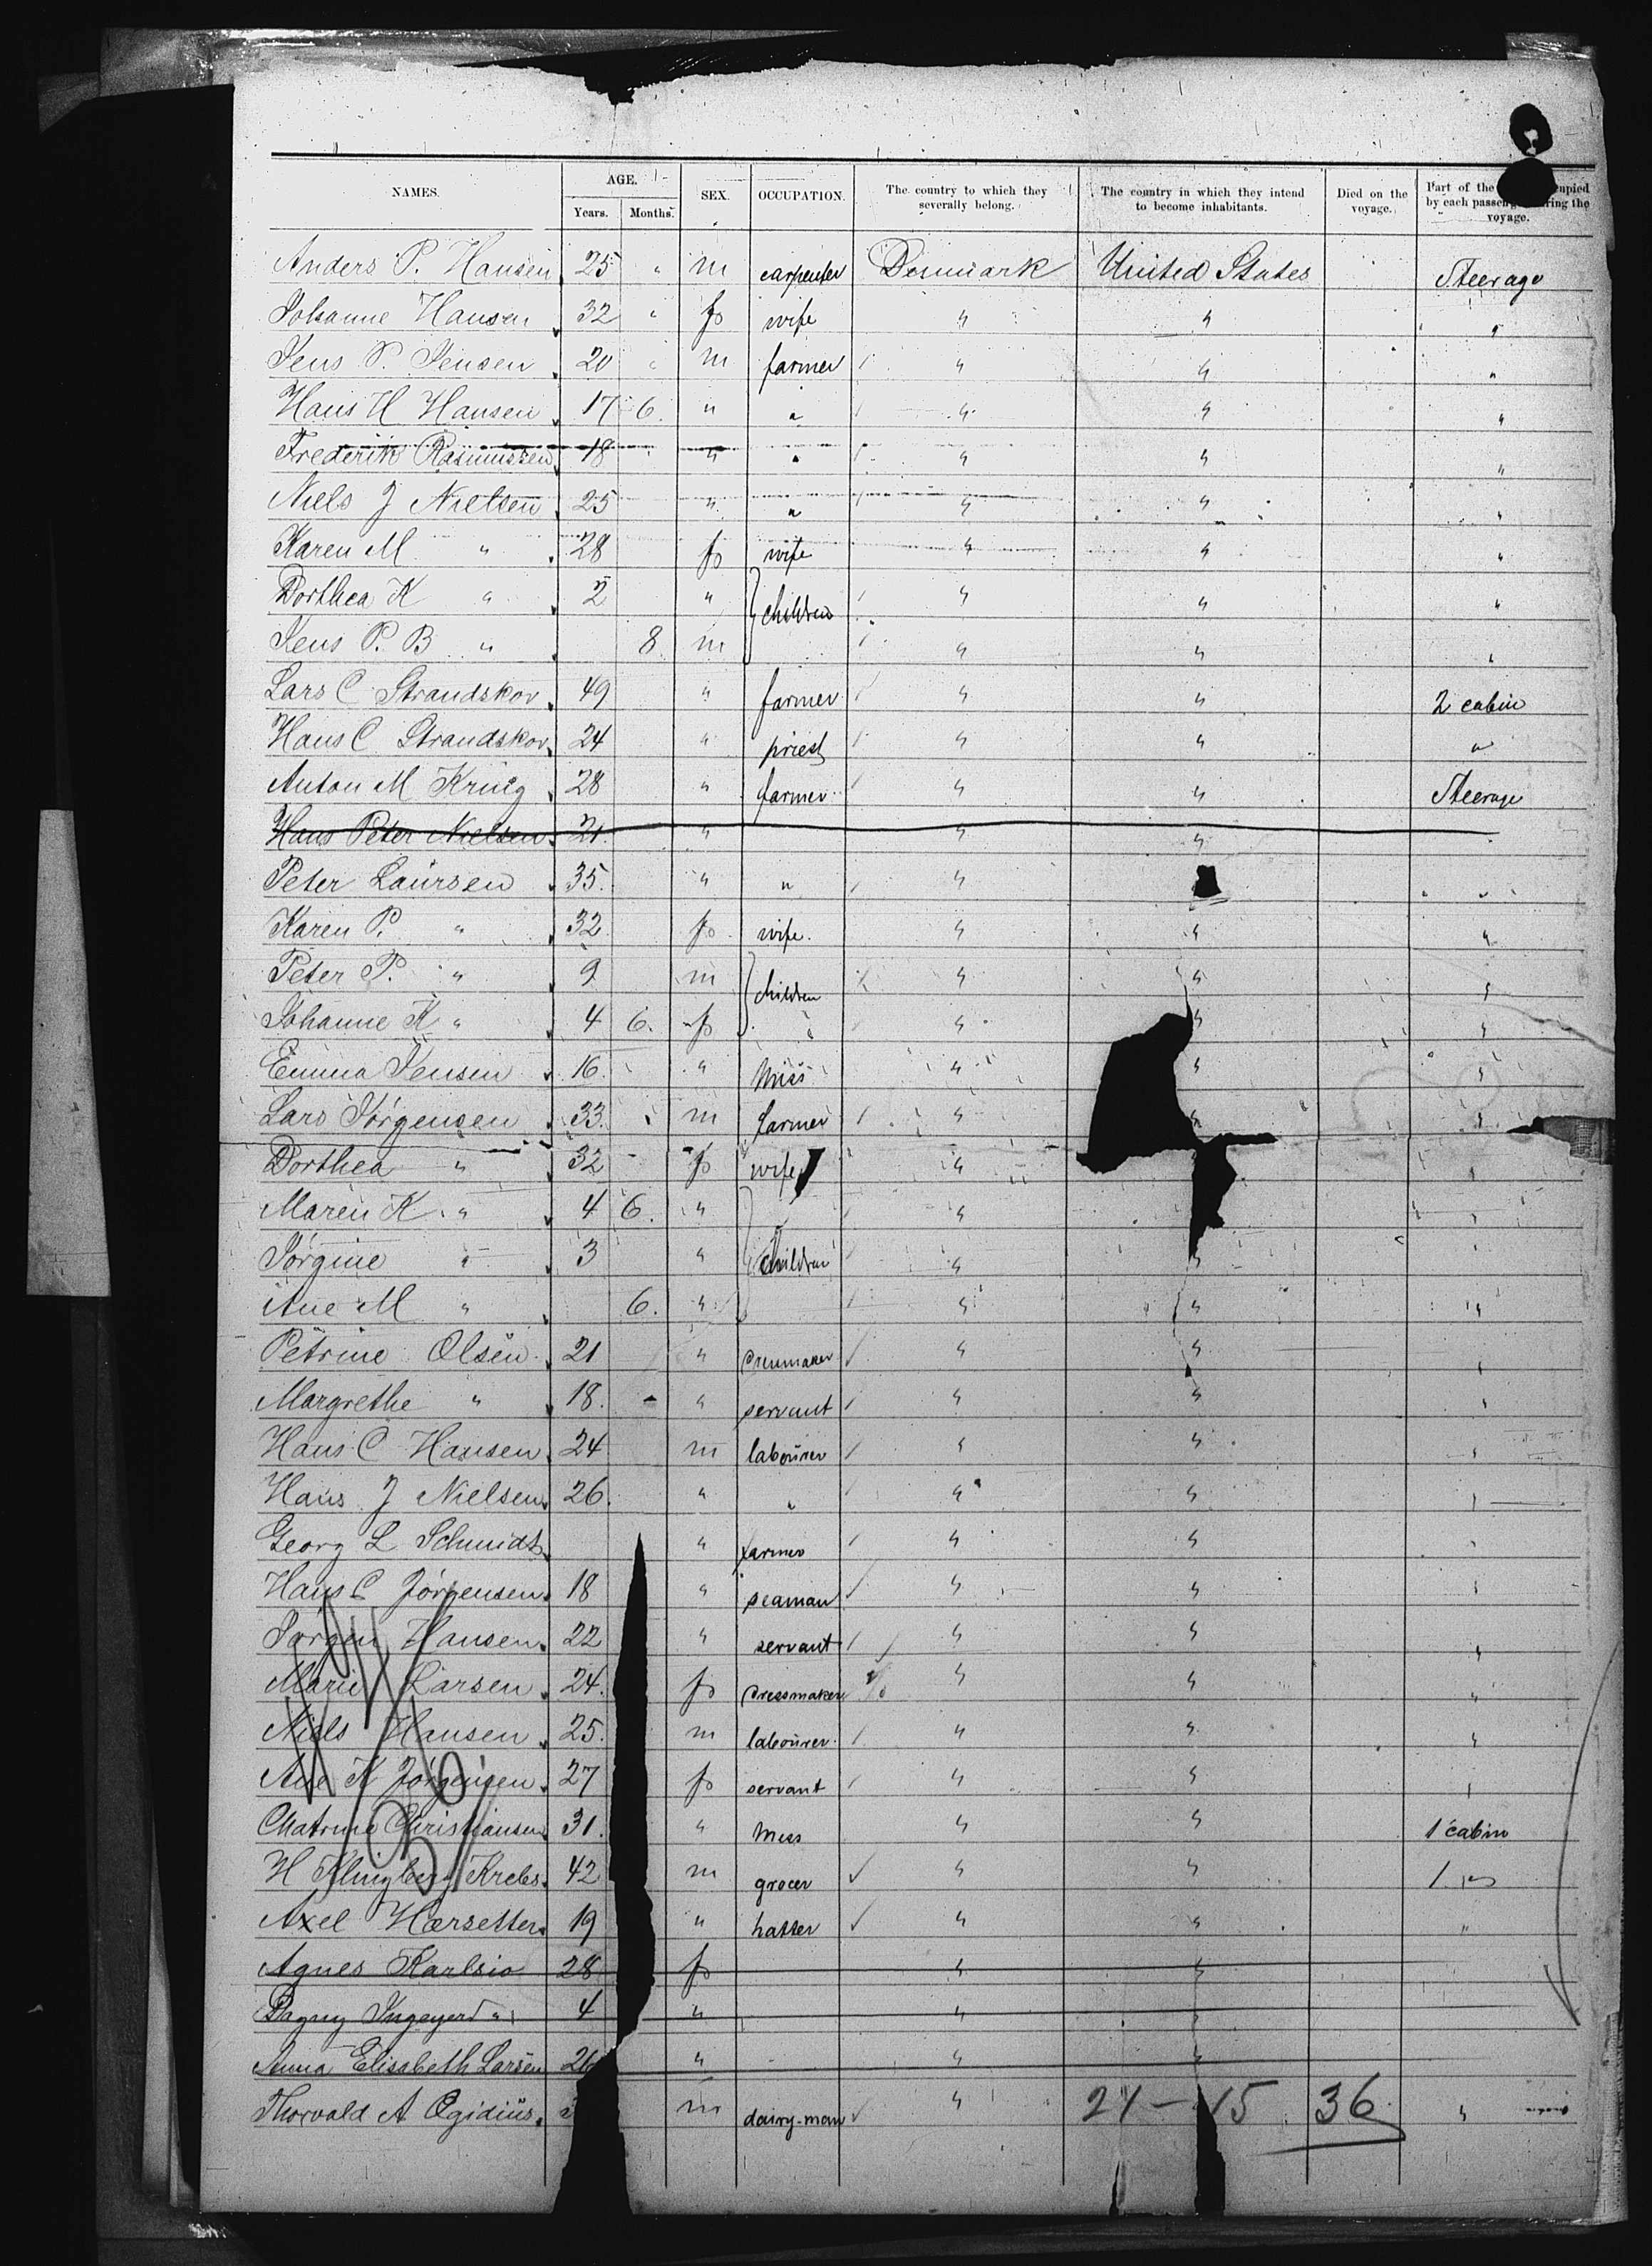 NAMES. AGE. SEX. OCCUPATION. The country to which they severally belong. The country in which they intend to become inhabitants. Died on the voyage. Part of the cupied by each passeng ring the voyage.
Years. Months.
Anders P. Hansen 25 " m carpenter Denmark United States Steerage
Johanne Hansen 32 " f wife " " "
Jens P. Jensen 20 " m farmer " " "
Hans H Hansen 17 6. " " " " "
Frederik Rasmussen 18 " " " " "
Niels J Nielsen 25 " " " " "
Karen M " 28 f wife " " "
Dorthea K " 2 " children " " "
Jens P. B " 8 m " " "
Lars C Strandskov 49 " farmer " " 2 cabin
Hans C Strandskov 24 " priest " " "
Anton M Krüig 28 " farmer " " Steerage
Hans Peter Nielsen 21. " " "
Peter Laursen 35. " " " "
Karen P. " 32 f wife. " " "
Peter P. " 9 m children " " "
Johanne K " 4 6. f " " " "
Emma Jensen 16. " Miss " " "
Lars Jörgensen 33. m farmer " " "
Dorthea " 32 f wife " "
Maren K. " 4 6. " " "
Jörgine " 3 " children " " "
Ane M " 6. " " " "
Petrine Olsen 21 " " " "
Margrethe " 18. " servant " " "
Hans C Hansen 24 m labourer " " "
Hans J Nielsen 26. " " " " "
Georg L Schmidt " farmer " " "
Hans C Jörgensen 18 " seaman " " "
Jörgen Hansen 22 " servant " " "
Marie Larsen 24. f dressmaker " " "
Niels Hansen 25. m labourer. " " "
Ane K Jörgensen 27 f servant " " "
Chatrine Christiansen 31. " Miss " " 1 cabin
H Klingberg Krebs 42 m grocer " " 1 "
Axel Hærsetter 19 " hatter " " "
Agnes Karlsio 28 f " "
Dagny Ingegerd " 4 " " "
Anna Elisabeth Larsen 26 " " "
Thorvald A Ægidiüs m dairy-man " 21 - 15 36 "